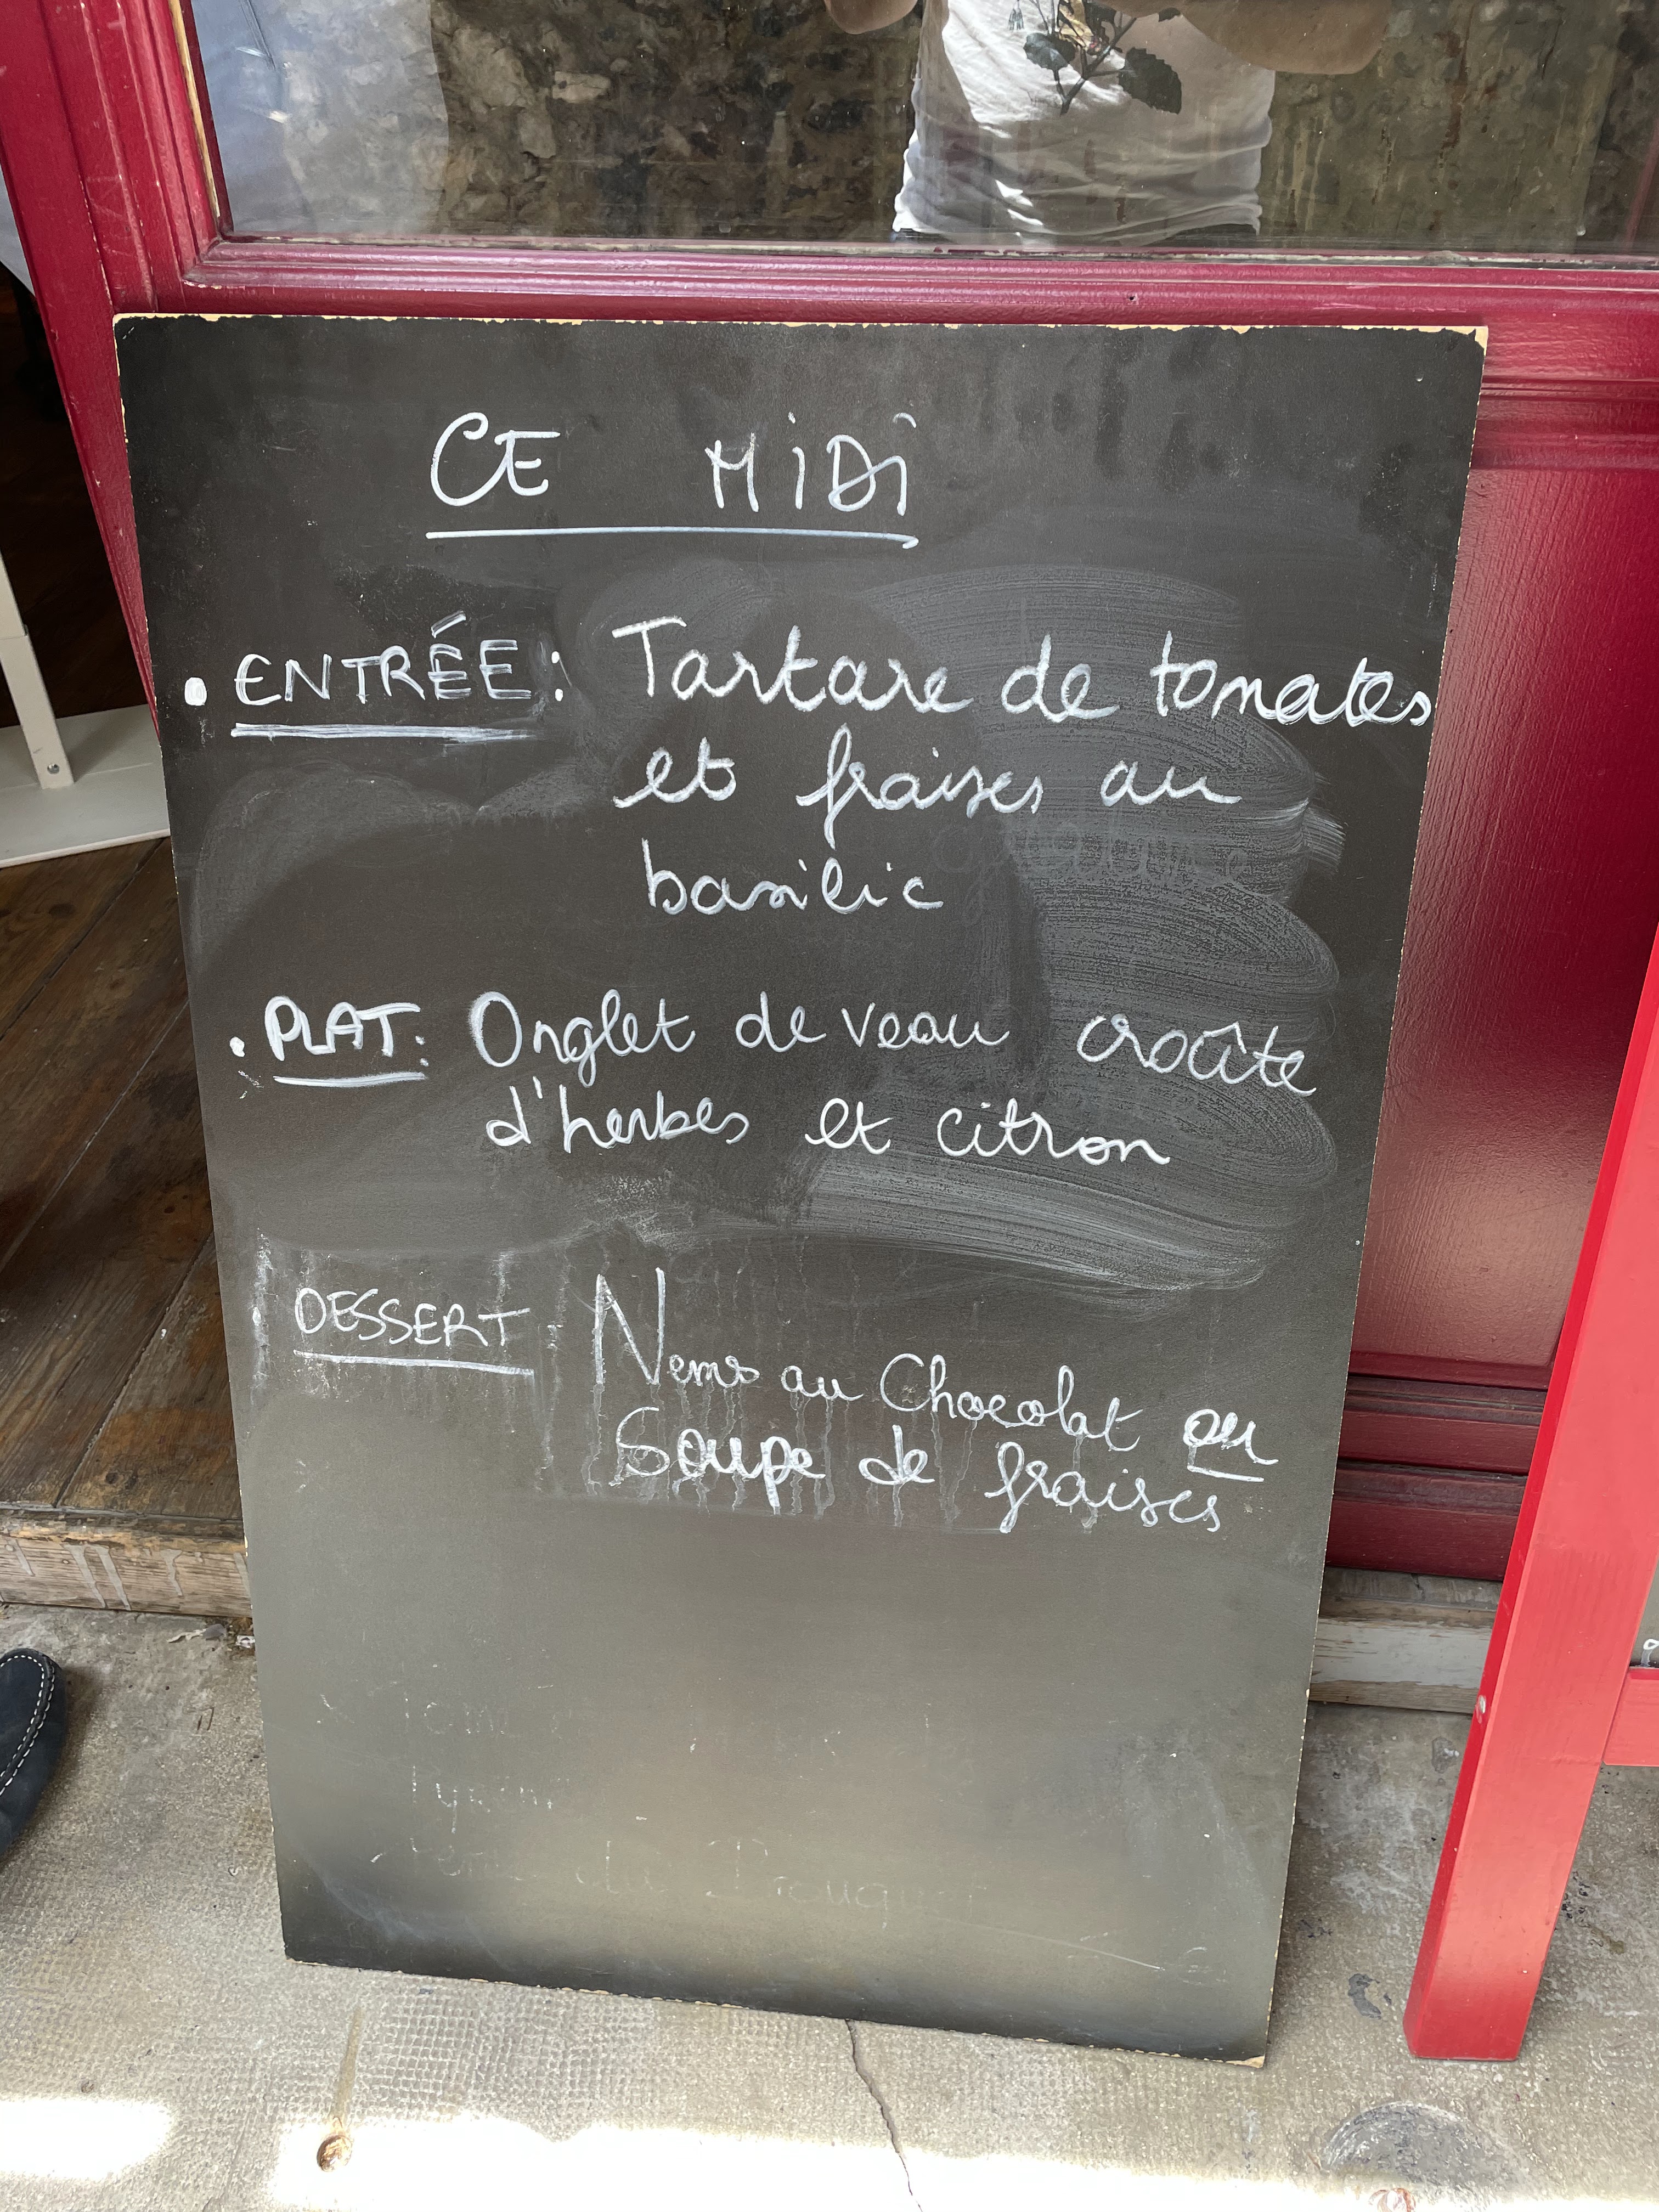 CE MiDi
. ENTRÉE : Tartare de tomates
et fraises au
basilic
. PLAT : Onglet de veau croûte
d'herbes et citron
. DESSERT : Nems au Chocolat ou
Soupe de fraises